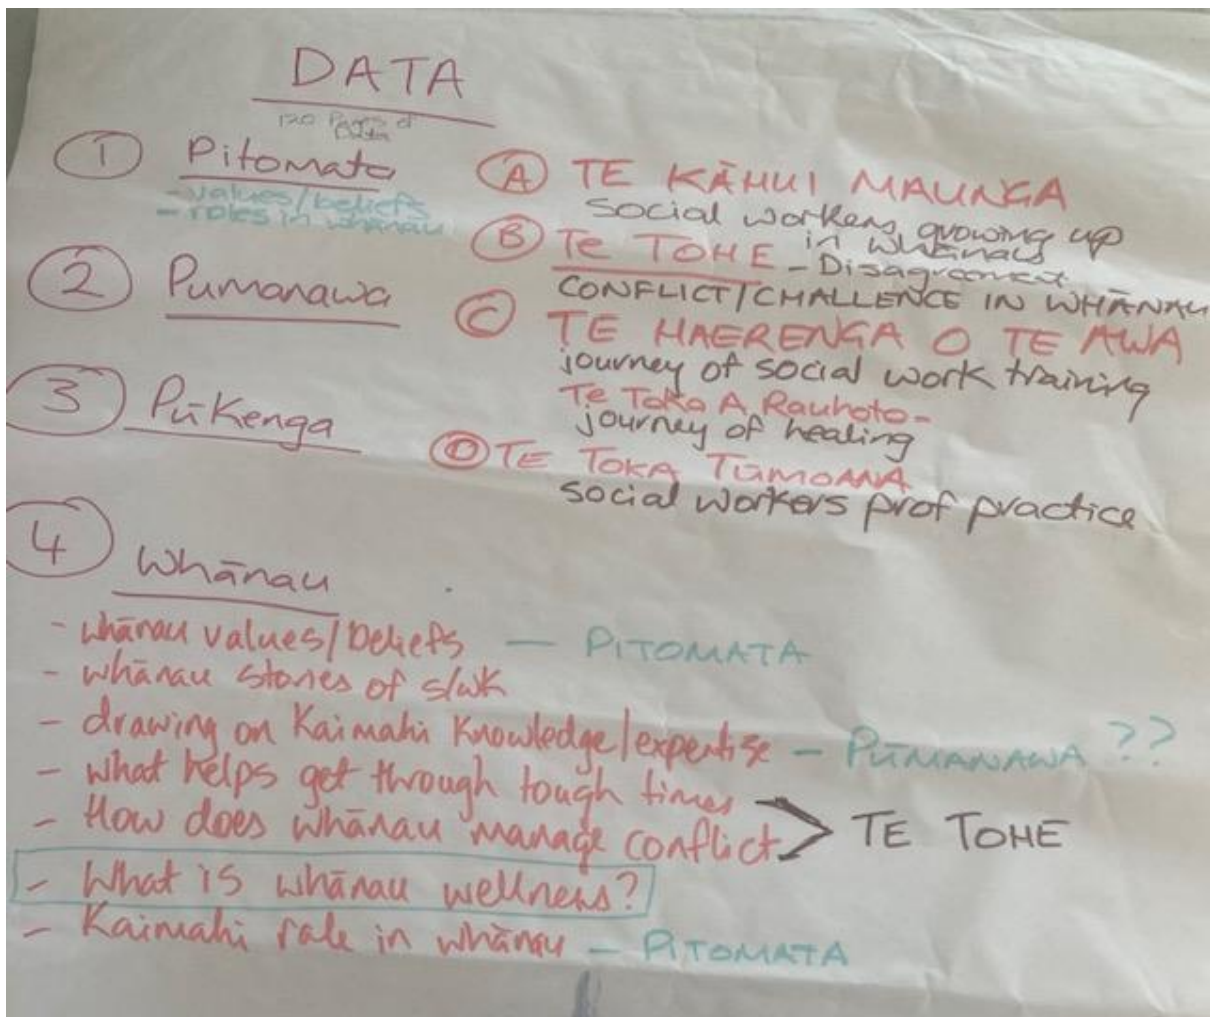 DATA
120 Pages of Data
① Pitomata
- values/beliefs
- roles in whānau
② Pumanawa
③ Pūkenga
Ⓐ TE KĀHUI MAUNGA
Social workers growing up in whānau
Ⓑ TE TOHE - Disagreement
CONFLICT/CHALLENGE IN WHĀNAU
Ⓒ TE HAERENGA O TE AWA
journey of social work training
Te Toka A Rauhoto -
journey of healing
Ⓓ TE TOKA TŪMOANA
social workers prof practice
④ Whānau
- whānau values/beliefs — PITOMATA
- whānau stories of s/wk
- drawing on Kaimahi Knowledge/expertise — PŪMANAWA ??
- what helps get through tough times
- How does whānau manage conflict > TE TOHE
- What is whānau wellness?
- Kaimahi role in whānau — PITOMATA